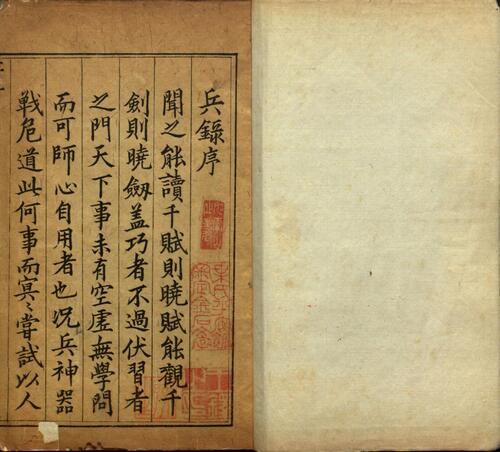 兵錄序
聞之能讀千賦則曉賦能觀千
劍則曉劔盖巧者不過伏習者
之門天下事未有空虛無學問
而可師心自用者也况兵神器
戰危道此何事而㝠〻嘗試以人